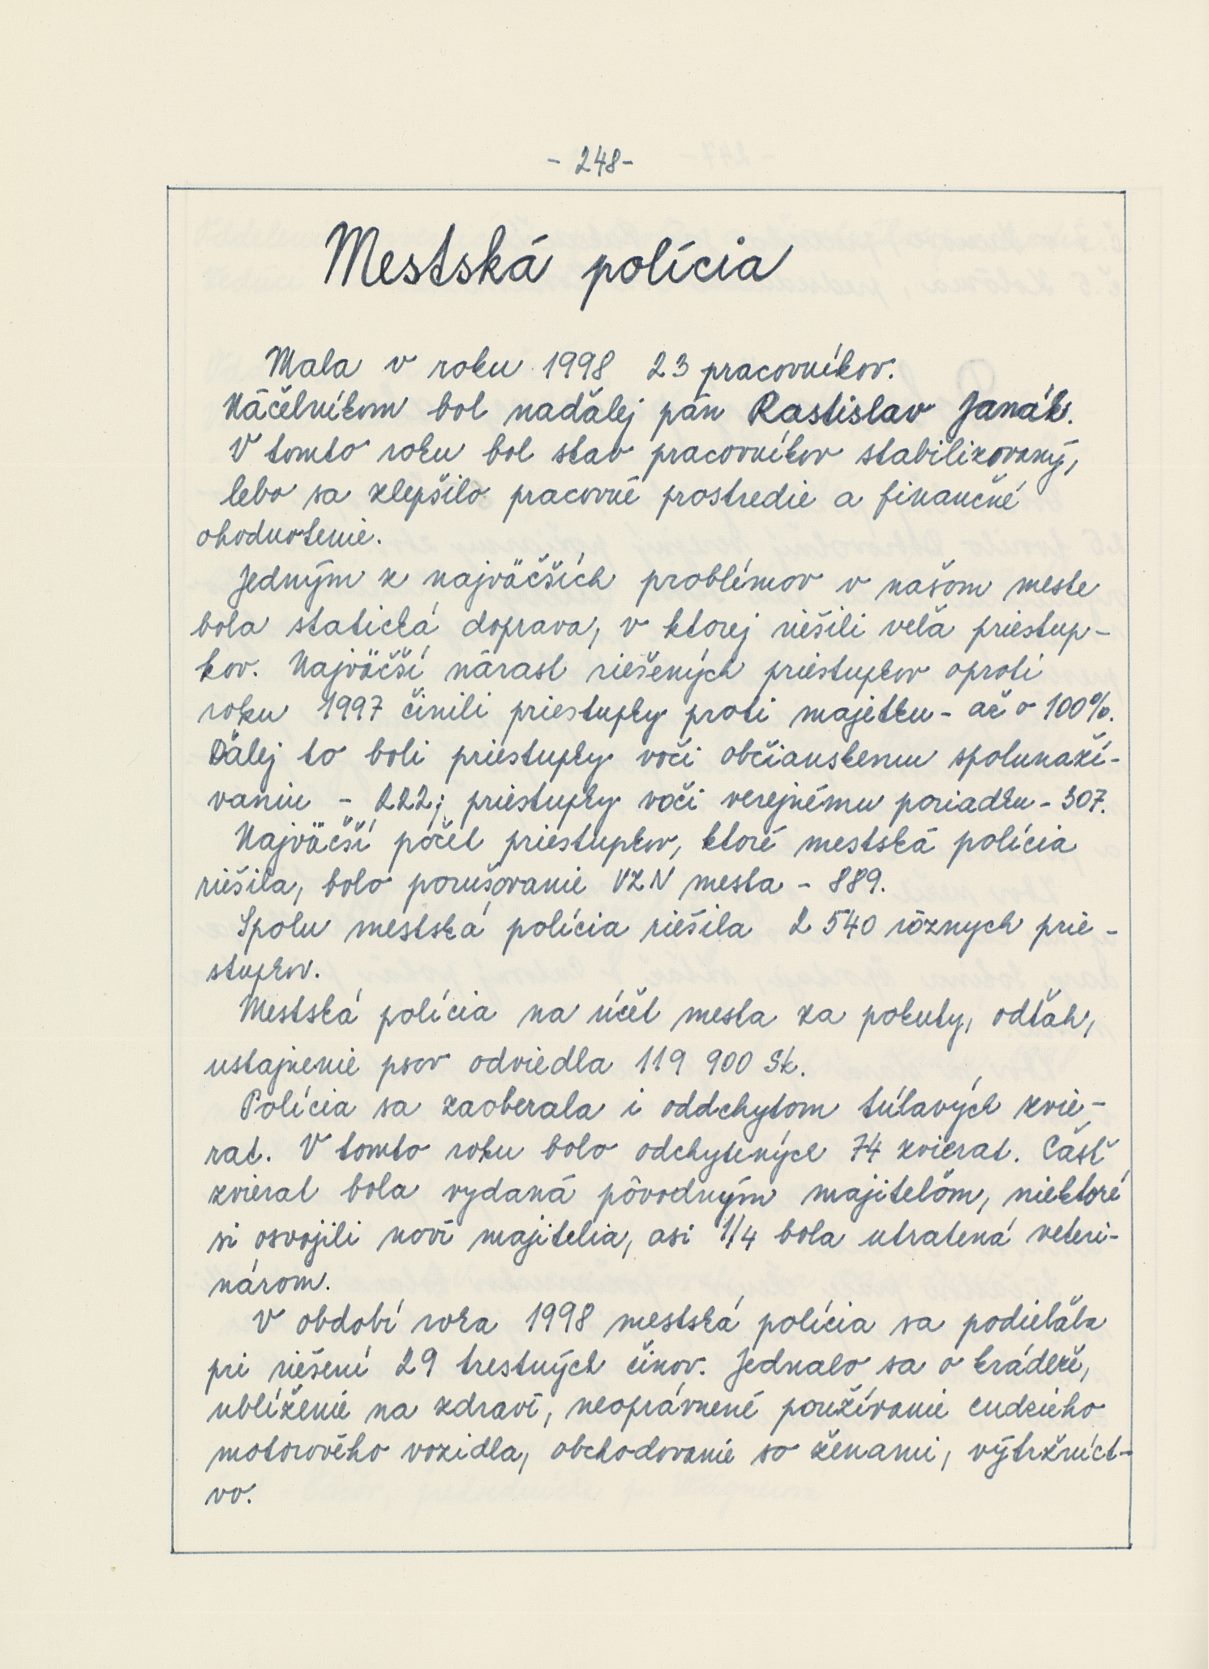 - 248-
Mestská polícia
Mala v roku 1998 23 pracovníkov.
Náčelníkom bol naďalej pán Rastislav Janák.
V tomto roku bol stav pracovníkov stabilizovaný,
lebo sa zlepšilo pracovné prostredie a finančné
ohodnotenie.
Jedným z najväčších problémov v našom meste
bola statická doprava, v ktorej riešili veľa priestup-
kov. Najväčší nárast riešených priestupkov oproti
roku 1997 činili priestupky proti majetku - až o 100%.
Ďalej to boli priestupky voči občianskemu spolunaží-
vaniu - 222; priestupky voči verejnému poriadku - 307.
Najväčší počet priestupkov, ktoré mestská polícia
riešila, bolo porušovanie VZN mesta - 889.
Spolu mestská polícia riešila 2 540 rôznych prie-
stupkov.
Mestská polícia na účet mesta za pokuty, odťah,
ustajnenie psov odviedla 119 900 Sk.
Polícia sa zaoberala i oddchytom túlavých zvie-
rat. V tomto roku bolo odchytených 74 zvierat. Časť
zvierat bola vydaná pôvodným majiteľom, niektoré
si osvojili noví majitelia, asi 1/4 bola utratená veteri-
nárom.
V období roka 1998 mestská polícia sa podieľala
pri riešení 29 trestných činov. Jednalo sa o krádeže,
ublíženie na zdraví, neoprávnené používanie cudzieho
motorového vozidla, obchodovanie so ženami, výtržníct-
vo.